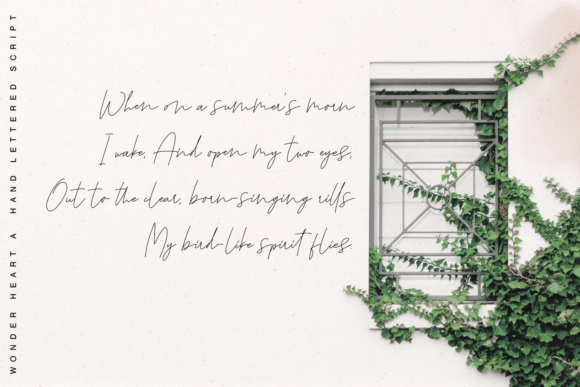 WONDER HEART A HAND LETTERED SCRIPT
When on a summer's morn
I wake, And open my two eyes,
Out to the clear, born-singing rills
My bird-like spirit flies.